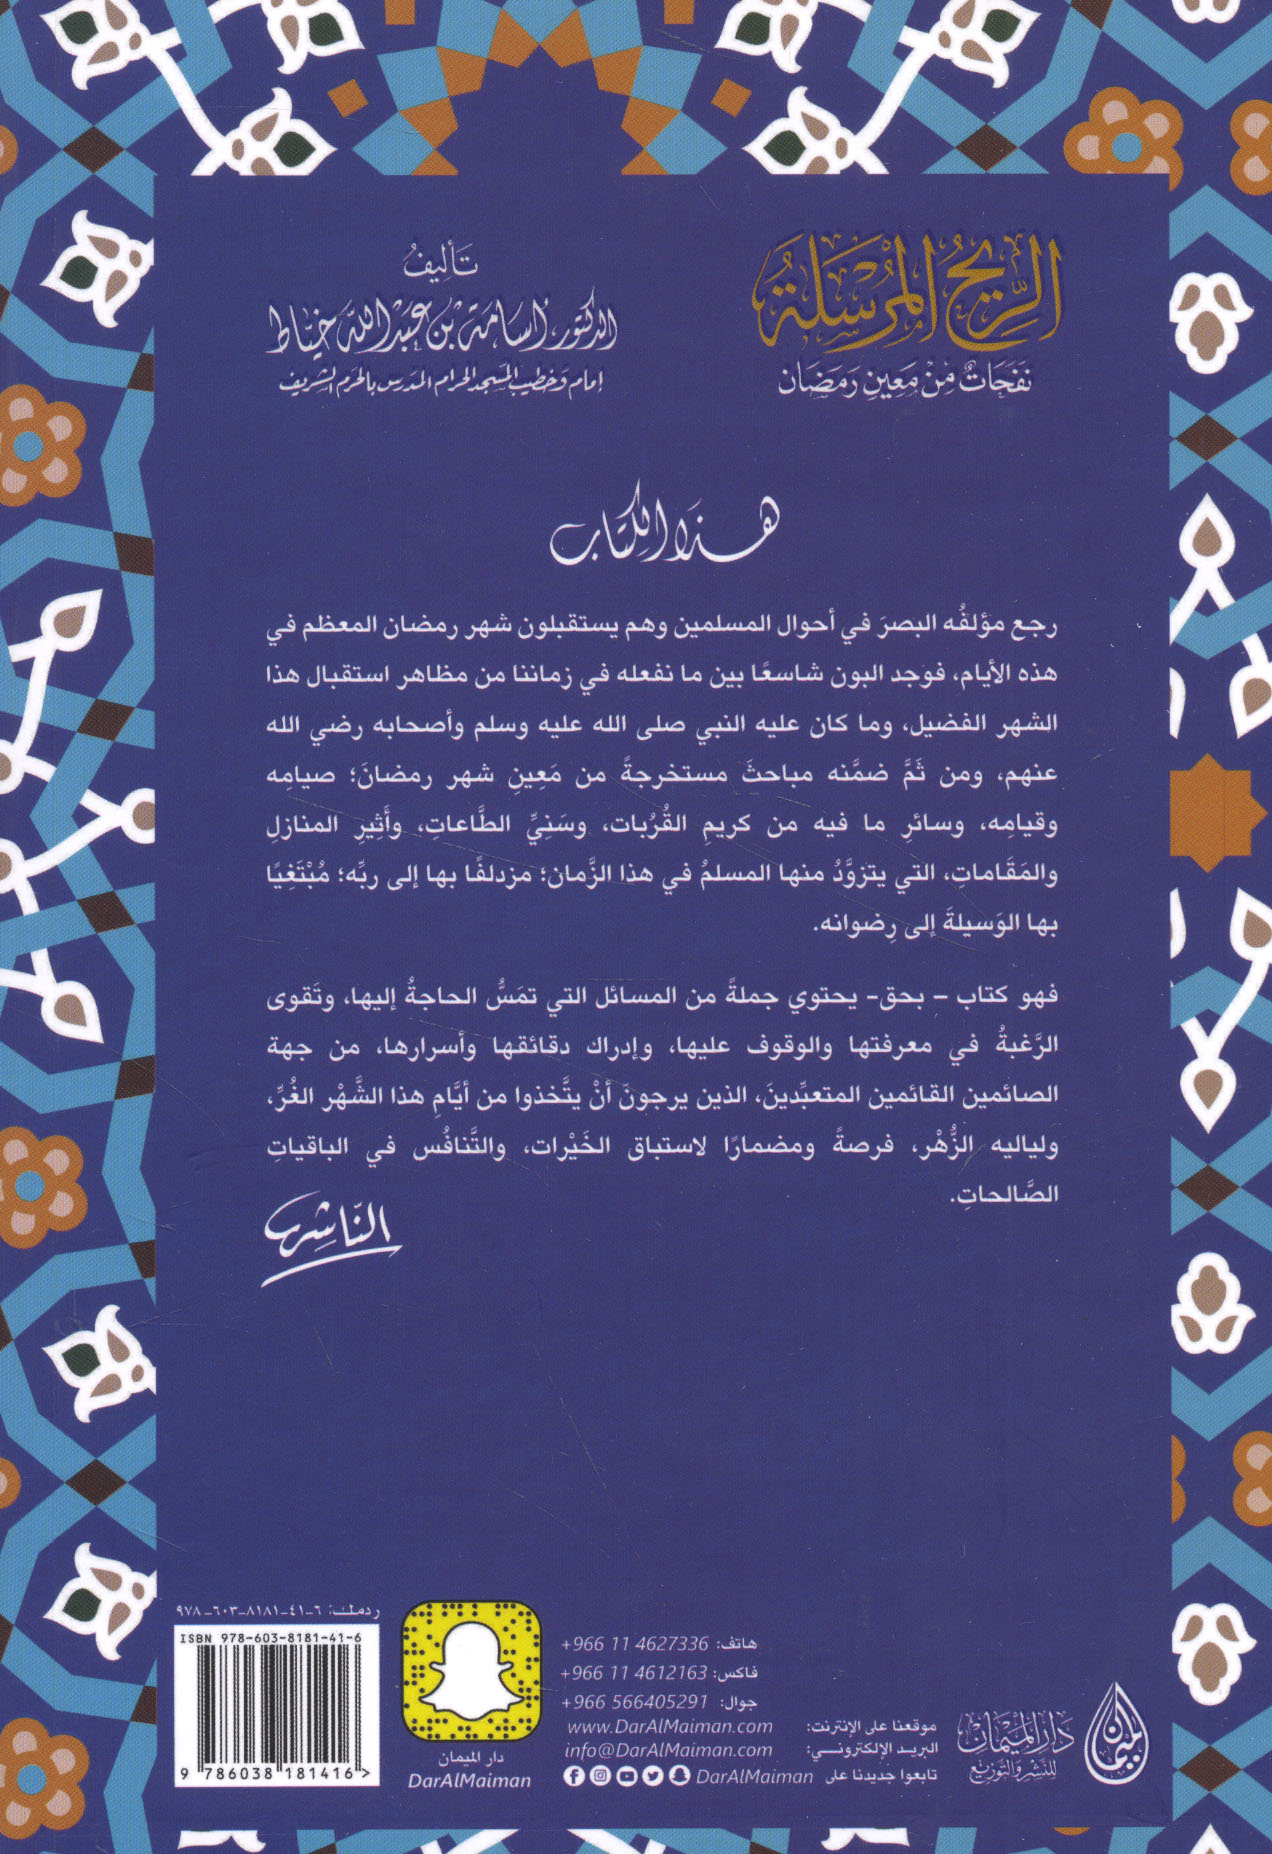 الرِّيحُ المُرْسَلَةُ
نَفَحَاتٌ مِنْ مَعِينِ رَمَضَان
تَأليفُ
الدكتور أسامة بن عبد الله خياط
إمام وخطيب المسجد الحرام المدرس بالحرم الشريف
هذا الكتاب
رجع مؤلفُه البصرَ في أحوال المسلمين وهم يستقبلون شهر رمضان المعظم في
هذه الأيام، فوجد البون شاسعًا بين ما نفعله في زماننا من مظاهر استقبال هذا
الشهر الفضيل، وما كان عليه النبي صلى الله عليه وسلم وأصحابه رضي الله
عنهم، ومن ثَمَّ ضمَّنه مباحثَ مستخرجةً من مَعِينِ شهر رمضانَ؛ صيامِه
وقيامِه، وسائرِ ما فيه من كريمِ القُرُبات، وسَنِيِّ الطَّاعاتِ، وأَثِيرِ المنازلِ
والمَقَاماتِ، التي يتزوَّدُ منها المسلمُ في هذا الزَّمان؛ مزدلفًا بها إلى ربِّه؛ مُبْتَغِيًا
بها الوَسيلةَ إلى رِضوانه.
فهو كتاب – بحق- يحتوي جملةً من المسائل التي تمَسُّ الحاجةُ إليها، وتَقوى
الرَّغبةُ في معرفتها والوقوف عليها، وإدراك دقائقها وأسرارها، من جهة
الصائمين القائمين المتعبِّدينَ، الذين يرجونَ أنْ يتَّخذوا من أيَّامِ هذا الشَّهْر الغُرِّ،
ولياليه الزُّهْر، فرصةً ومضمارًا لاستباق الخَيْرات، والتَّنافُس في الباقياتِ
الصَّالحاتِ.
النَّاشِر
ردمك: ٦-٤١-٨١٨١-٦٠٣-٩٧٨
ISBN 978-603-8181-41-6
9 786038 181416 >
دار الميمان
DarAlMaiman
هاتف: +966 11 4627336
فاكس: +966 11 4612163
جوال: +966 566405291
موقعنا على الإنترنت: www.DarAlMaiman.com
البريد الإلكتروني: info@DarAlMaiman.com
تابعوا جديدنا على DarAlMaiman
دار الميمان
للنشر والتوزيع
الميمان